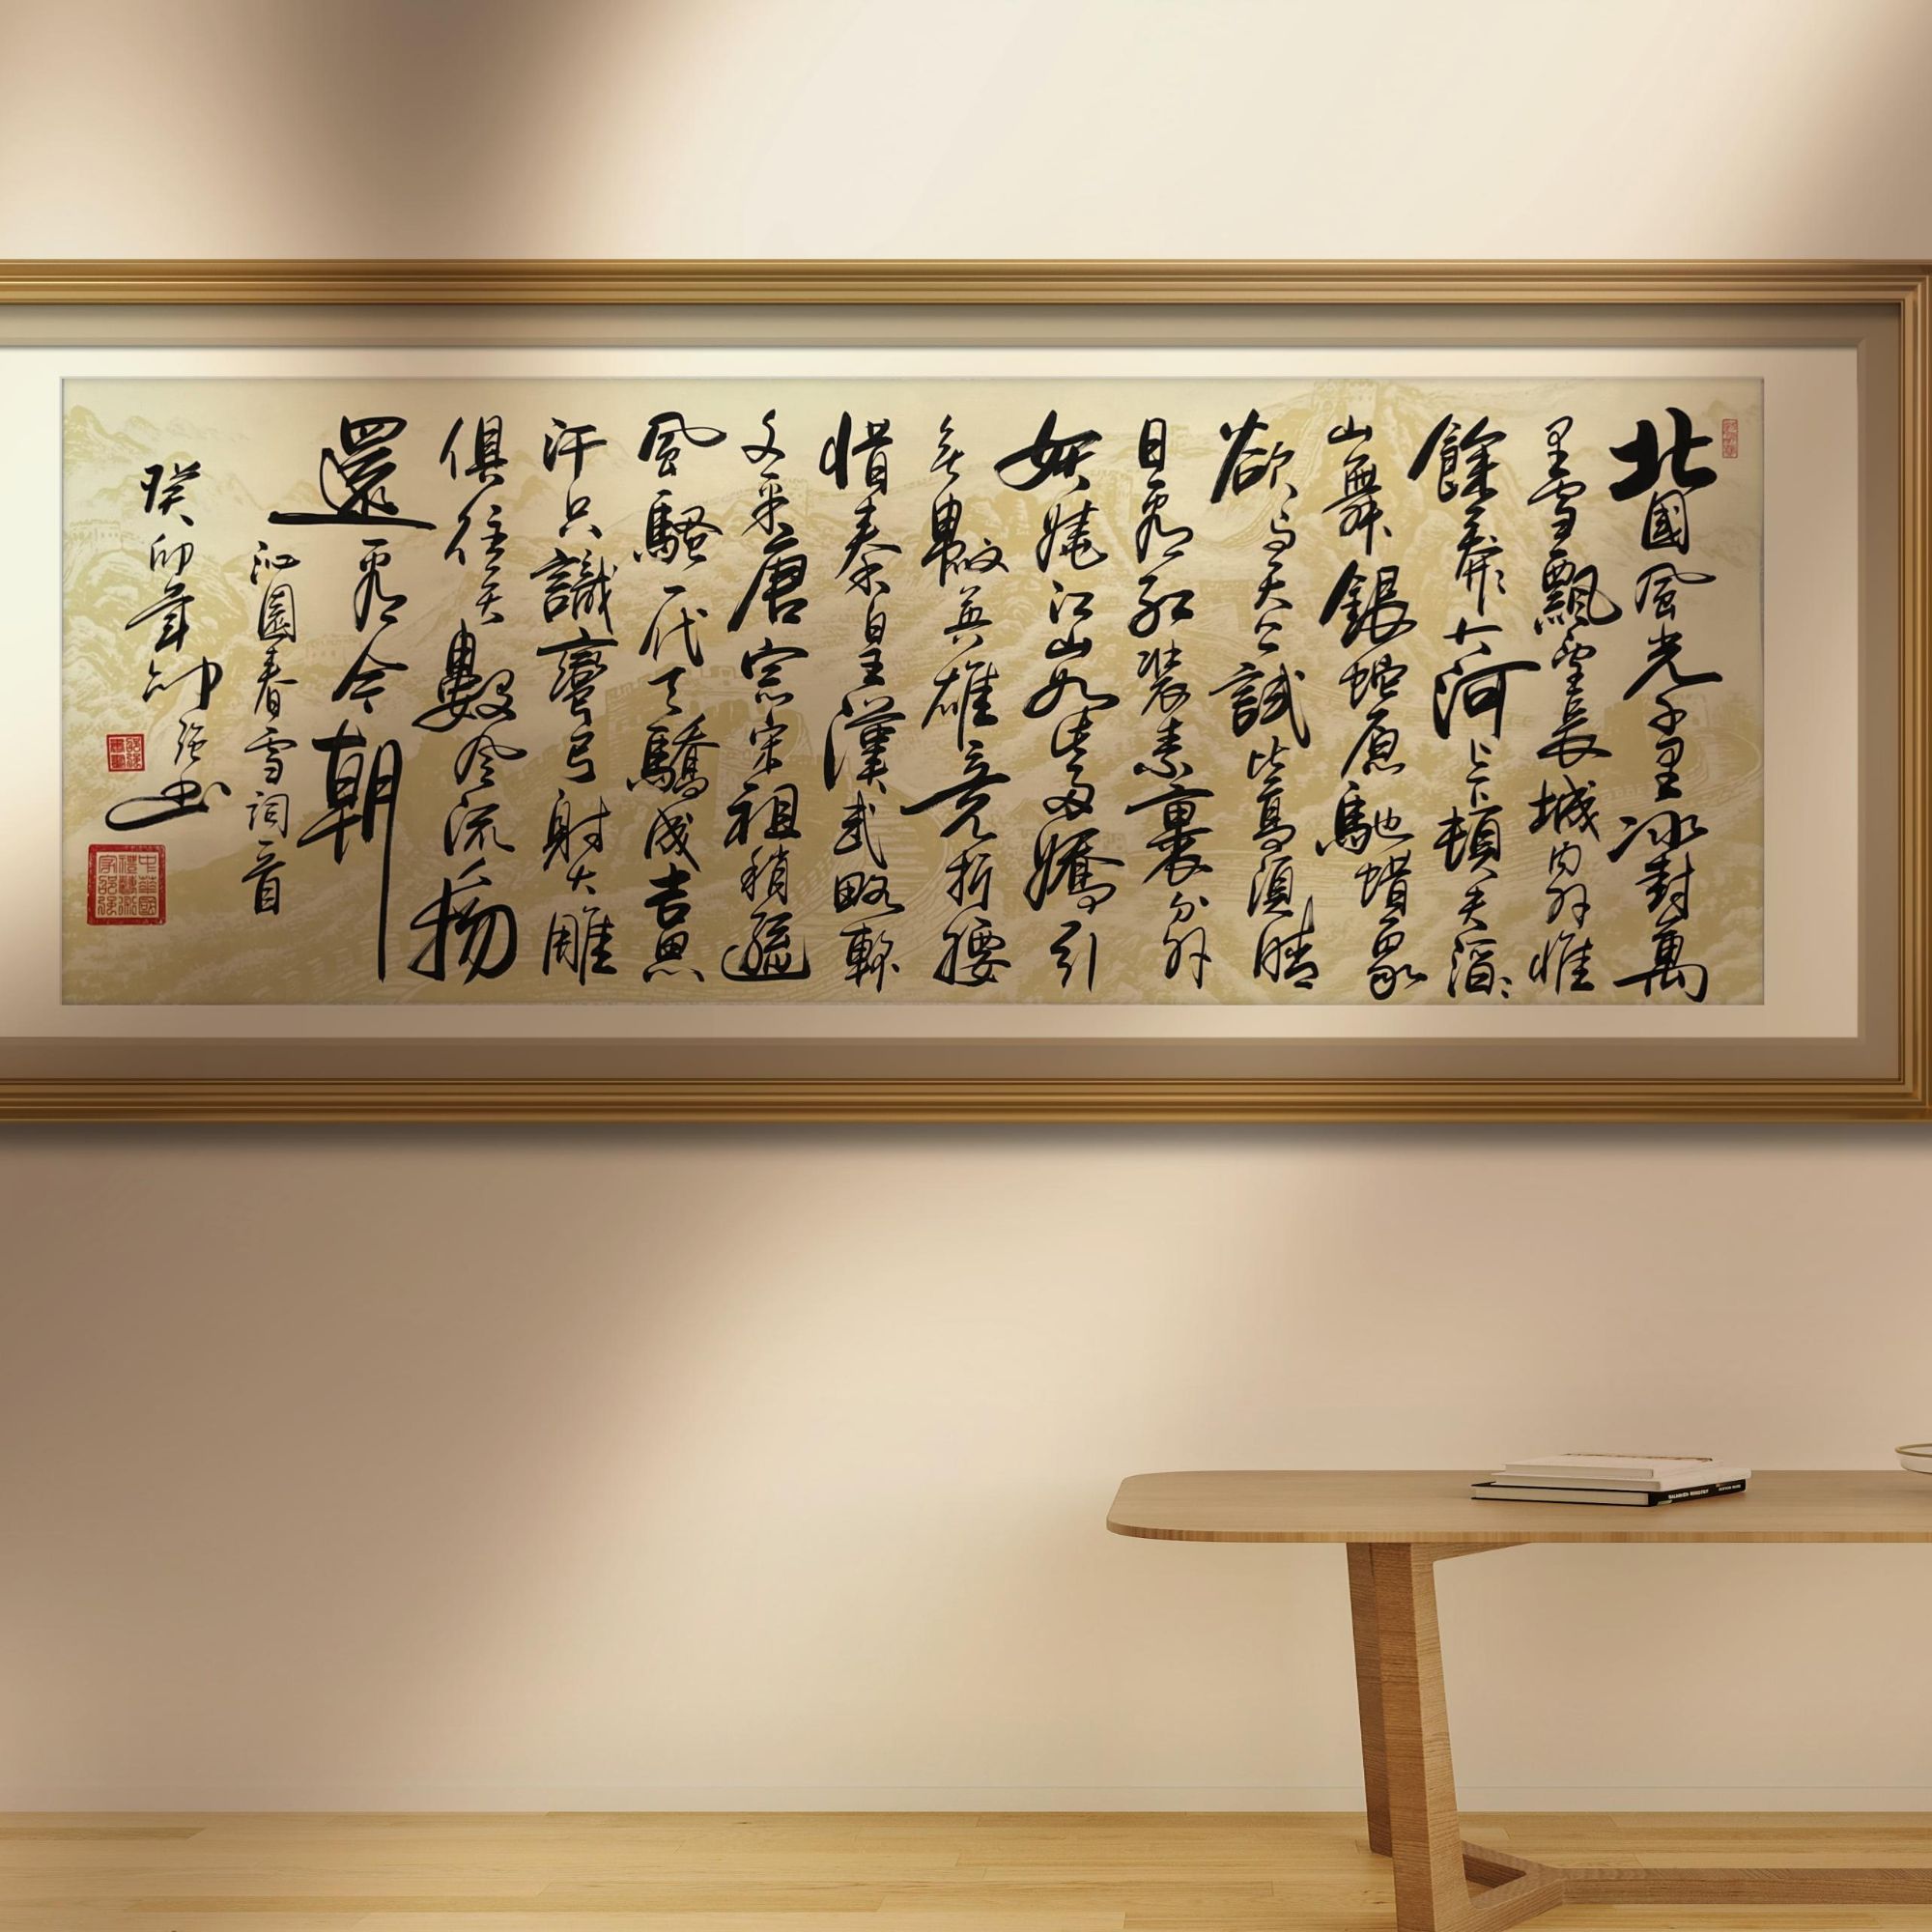 北國風光千里冰封萬
里雪飄望長城内外惟
餘莽莽大河上下頓失滔滔
山舞銀蛇原馳蜡象
欲与天公試比高須晴
日看紅裝素裹分外
妖嬈江山如此多嬌引
無數英雄竞折腰
惜秦皇漢武略輸
文采唐宗宋祖稍遜
風騷一代天驕成吉思
汗只識彎弓射大雕
俱往矣數風流人物
還看今朝
沁園春雪詞一首
癸卯年邵强书
中華國
禮藝術
家邵强